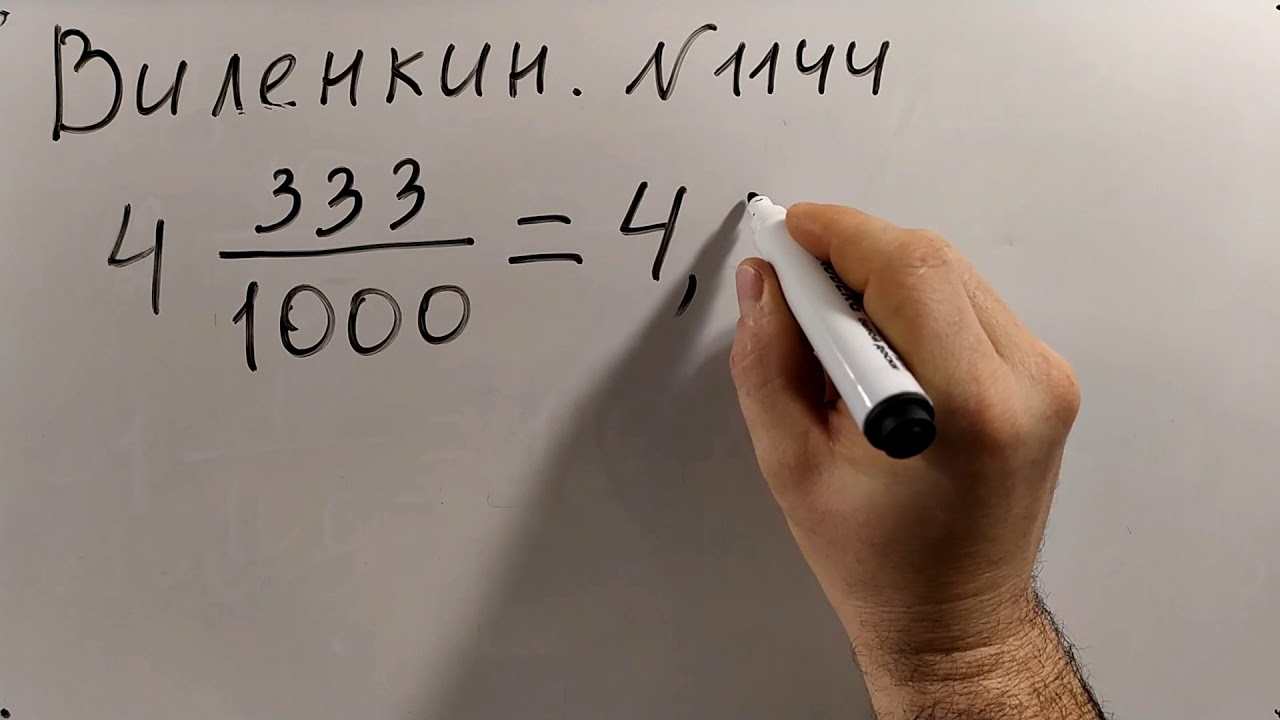 Виленкин. N1144
4 333/1000 = 4,